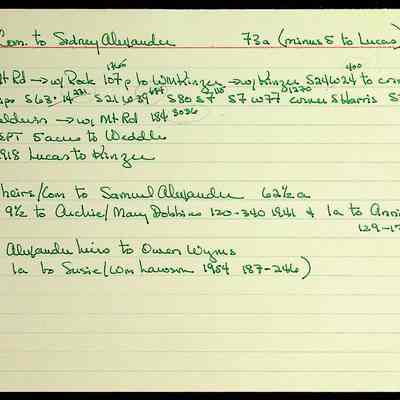 Com. to Sidney Alexander 73a (minus 5 to Lucas)
Mt Rd → w/ Rock 107p to WM Kinzer → w/ Kinzer S24W24 to corn
S63. 14 S21W 39 S80 57 S7W77 corner S Harris
→ w/ Mt Rd 184
EPT 5 acres to Weddle
1918 Lucas to Kinzer
heirs/Com to Samuel Alexander 62½a
9½ to Archie/Mary Dobbins 120-340 1941 & 1a to Anni
129-1
Alexander heirs to Owen Wyms
1a to Susie/Wm Lawson 1954 187-246)